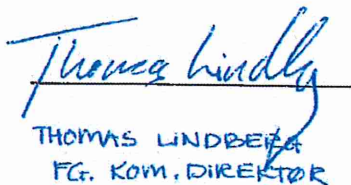 Thomas Lindbg
THOMAS LINDBERG
FG. KOM. DIREKTØR